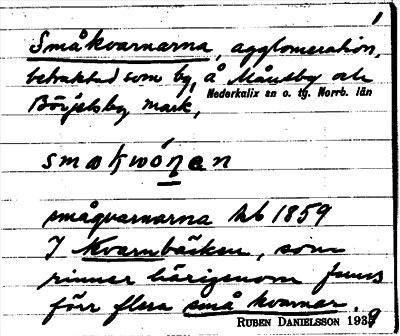 1
Småkvarnarna, agglomeration,
betraktad som by, å Månsby och
Börjelsby mark,
Nederkalix sn o. tg. Norrb. län
småqvarnarna hb 1859
I Kvarnbäcken, som
rinner härigenom funns
förr flera små kvarnar.
RUBEN DANIELSSON 1939